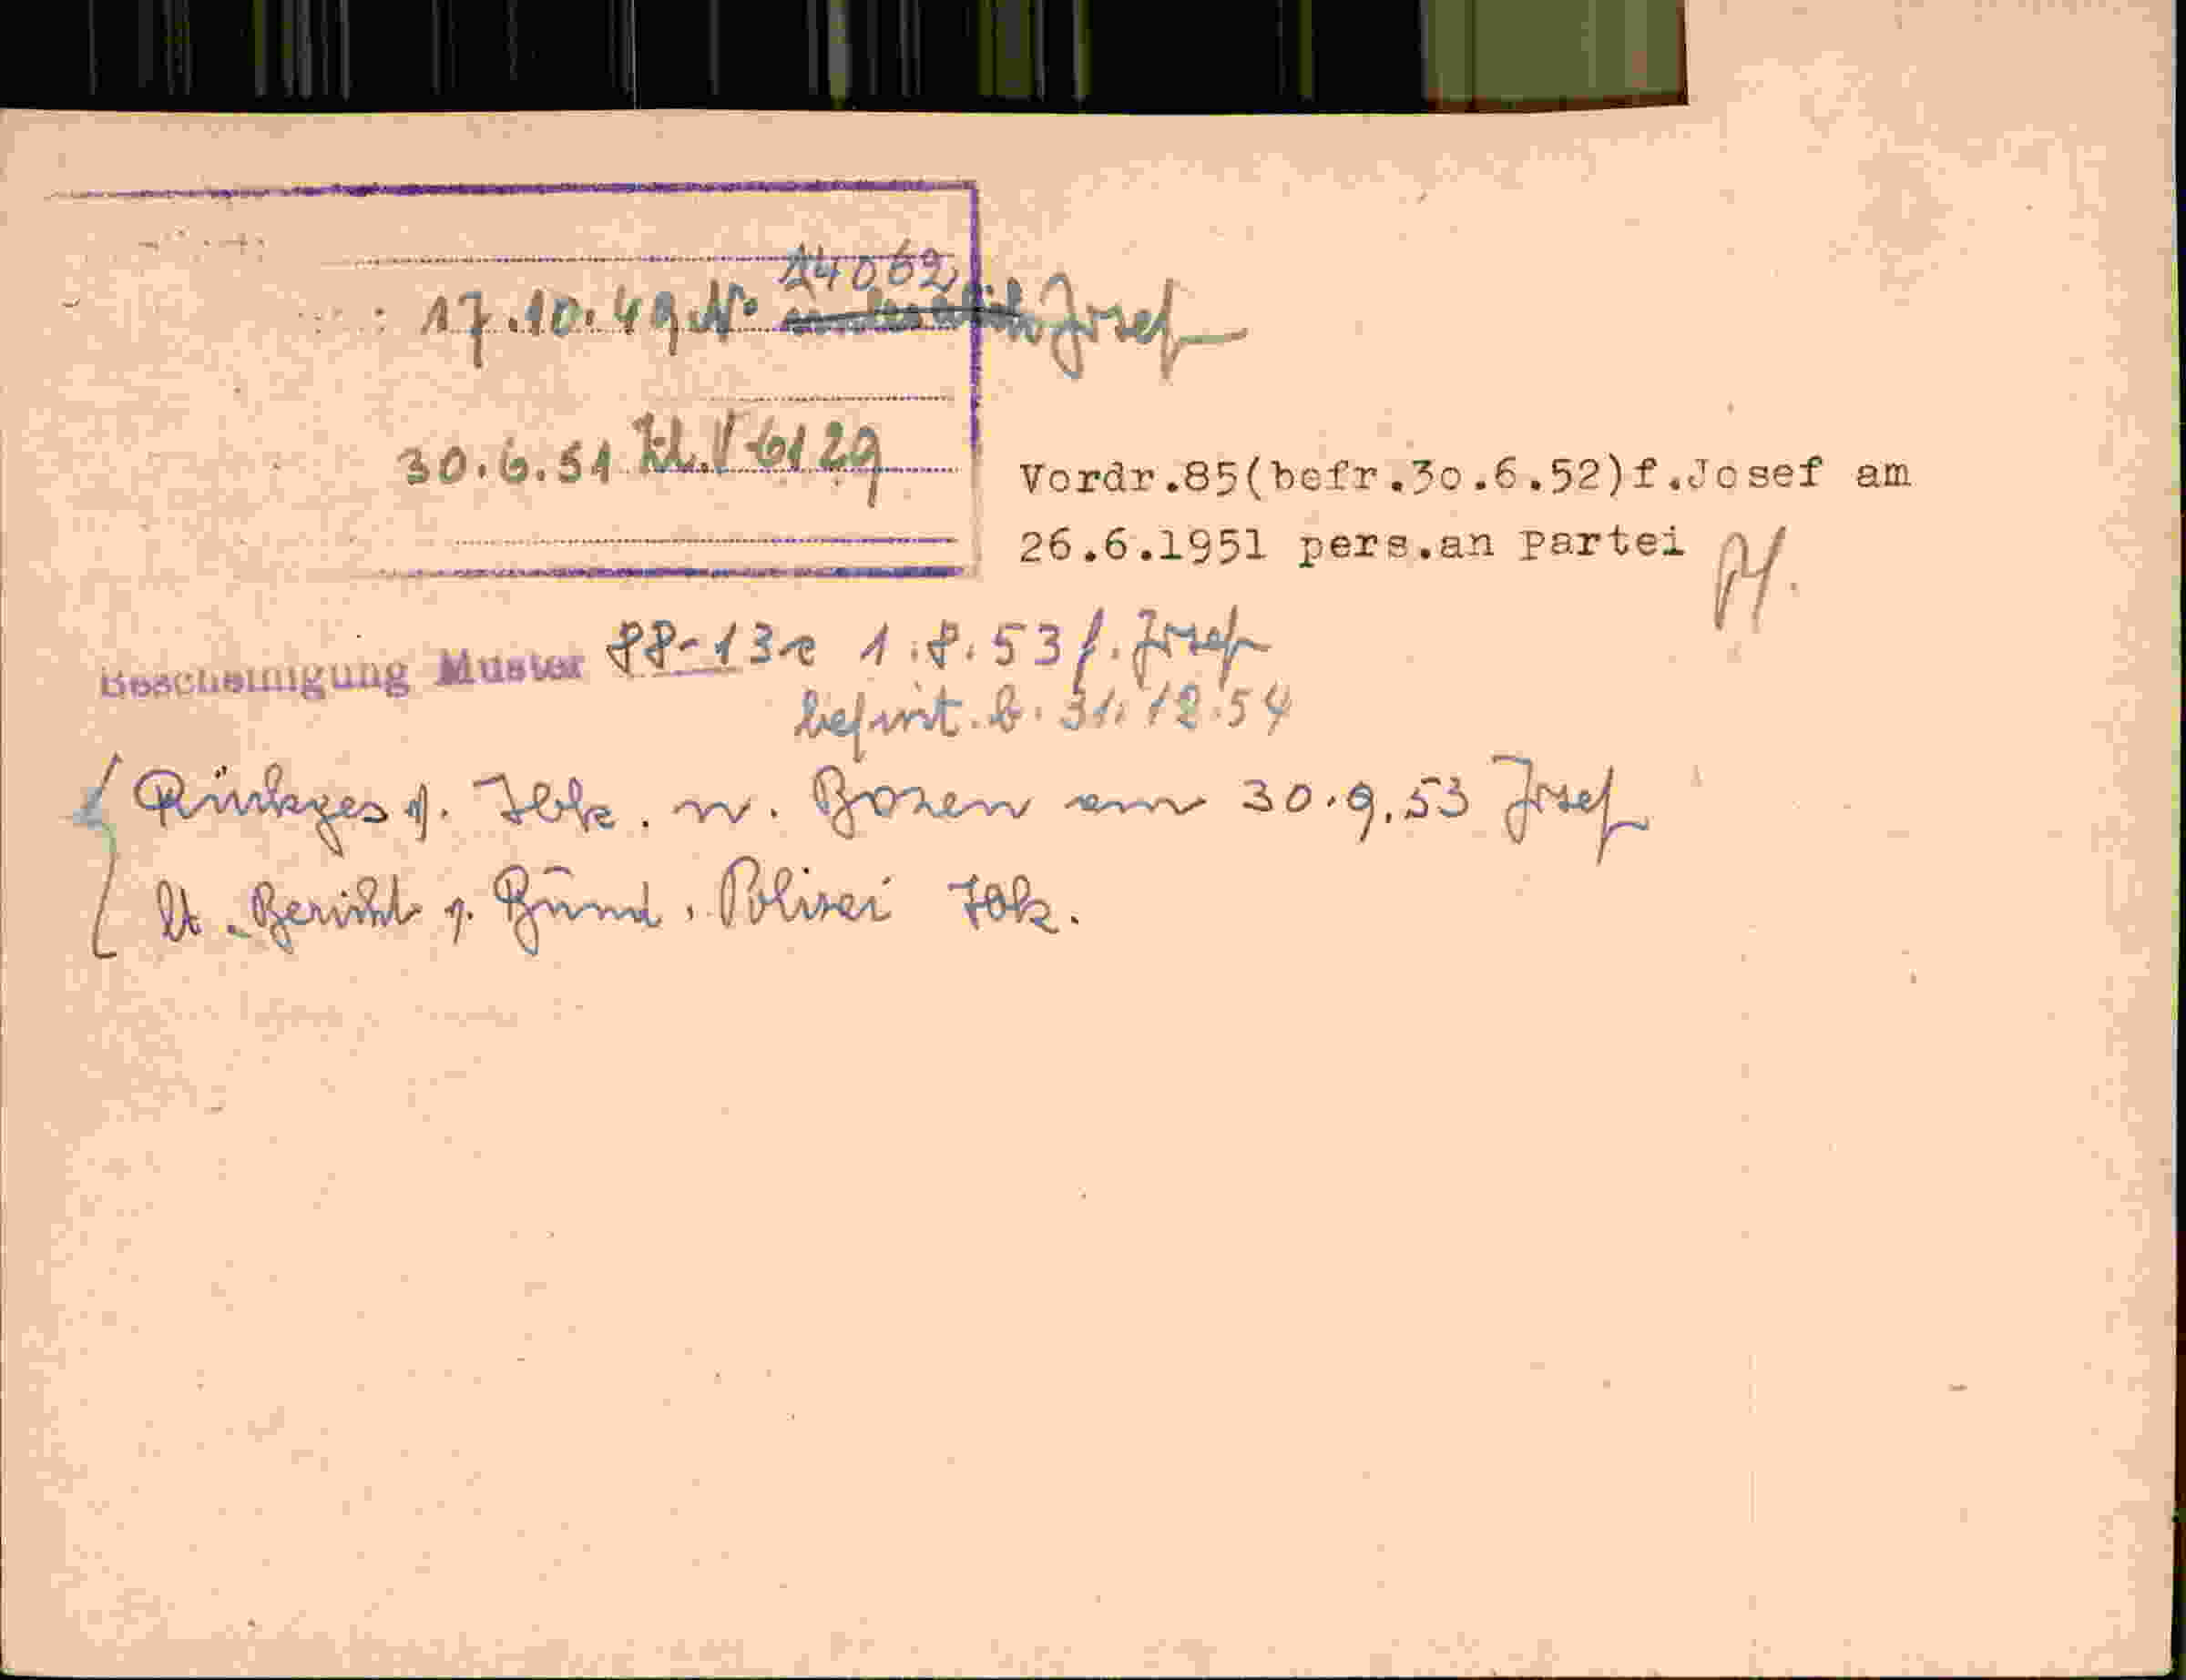 24062
17.10.49 No Josef
30.6.51 Zl. I-6129
Vordr.85(befr.30.6.52)f.Josef am
26.6.1951 pers.an Partei
Bescheinigung Muster 88-13e 1.8.53 f. Josef
befrist. b. 31.12.54
Rückges v. Ibk. n. Bozen am 30.9.53 Josef
lt. Bericht v. Bund. Polizei Ibk.